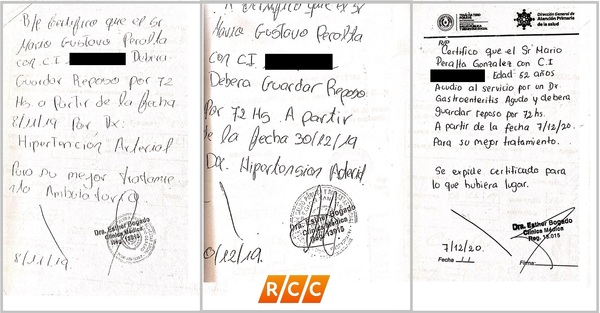 R/p Certifico que el Sr
Mario Gustavo Peralta
con C.I
Debera
Guardar Reposo por 72
Hs a partir de la fecha
8/11/19 Por Dx:
Hipertención Arterial
Para su mejor tratamie
nto Ambulatorio
Dra. Esther Bogado
Clínica Médica
8/11/19.
Certifico que el Sr
Mario Gustavo Peralta
con C.I
Debera Guardar Reposo
Por 72 Hs. A Partir
de la fecha 30/12/19
Dx. Hipertension Arterial.
Dra. Esther Bogado
Clínica Médica
Reg. 13015
0/12/19.
Dirección General de
Atención Primaria
de la salud
R/p
Certifico que el Sr Mario
Peralta Gonzalez con C.I
Edad 52 años
Acudio al servicio por un Dx
Gastroenteritis Agudo y debera
guardar reposo por 72hs.
A partir de la fecha 7/12/20.
Para su mejor tratamiento.
Se expide certificado para
lo que hubiera lugar.
Dra. Esther Bogado
Clínica Médica
Reg. 13.015
7/12/20.
Fecha
Firma:
RCC